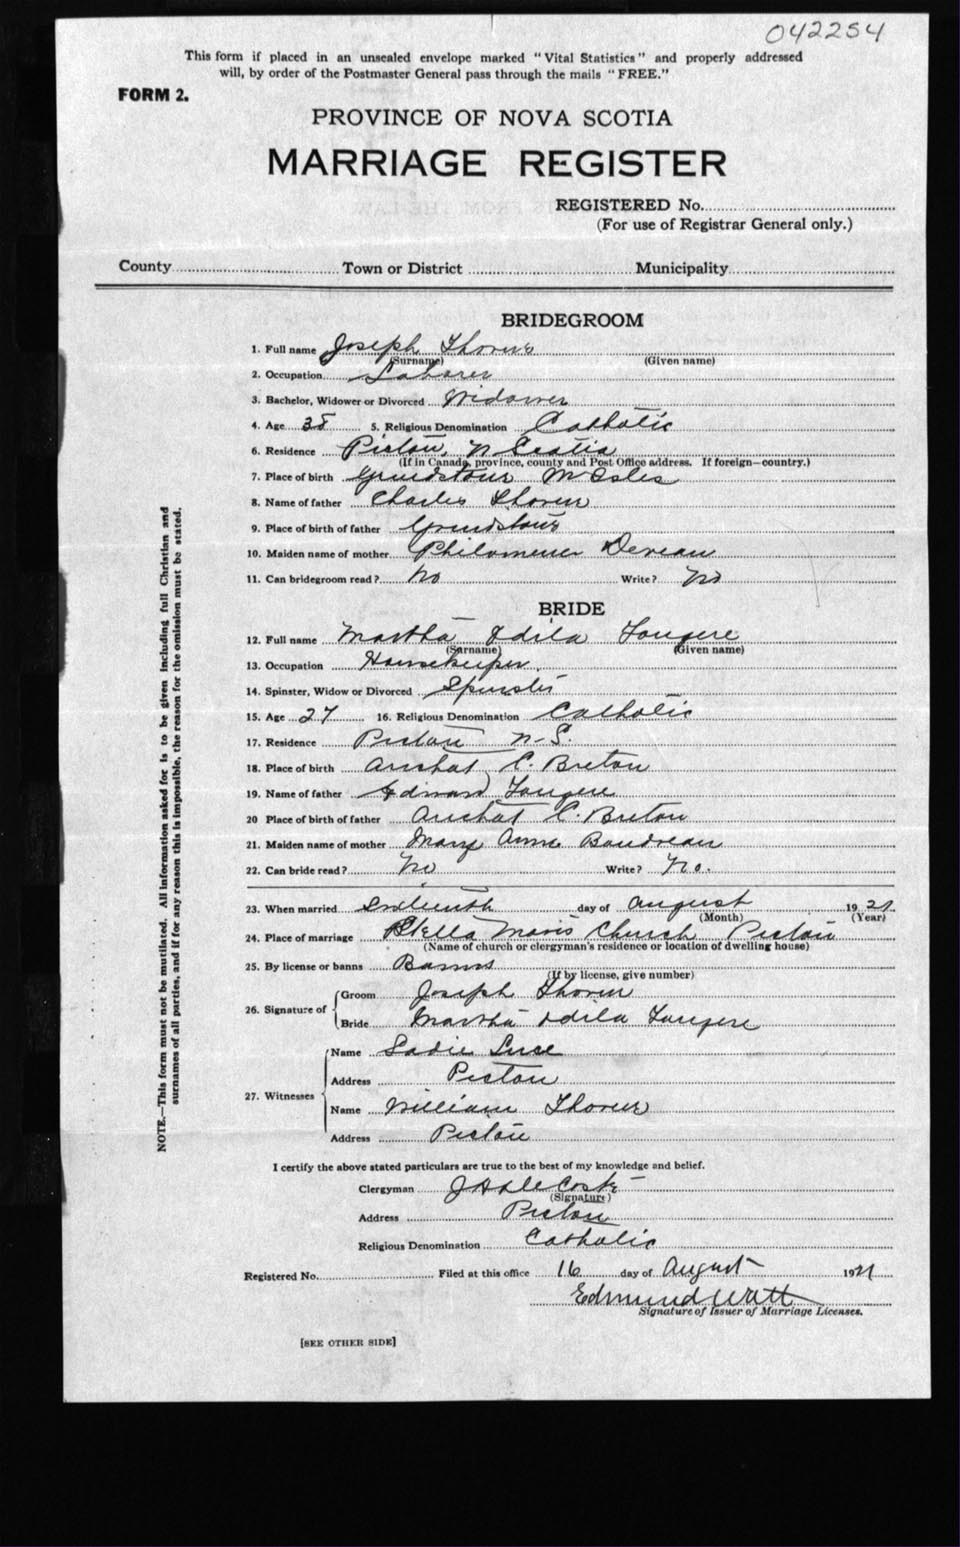 042254
This form if placed in an unsealed envelope marked "Vital Statistics" and properly addressed
will, by order of the Postmaster General pass through the mails "FREE."
FORM 2.
PROVINCE OF NOVA SCOTIA
MARRIAGE REGISTER
REGISTERED No.
(For use of Registrar General only.)
County Town or District Municipality
BRIDEGROOM
1. Full name Joseph
(Surname) (Given name)
2. Occupation Laborer
3. Bachelor, Widower or Divorced Widower
4. Age 5. Religious Denomination Catholic
6. Residence Pictou, N Scotia
(If in Canada, province, county and Post Office address. If foreign—country.)
7. Place of birth Grindstone M Isles
8. Name of father Charles
9. Place of birth of father Grindstone
10. Maiden name of mother
11. Can bridegroom read? No Write? No
BRIDE
12. Full name Martha Odila Fougere
(Surname) (Given name)
13. Occupation Housekeeper.
14. Spinster, Widow or Divorced Spinster
15. Age 27 16. Religious Denomination Catholic
17. Residence Pictou N-S.
18. Place of birth Arichat C. Breton
19. Name of father Edward Fougere
20 Place of birth of father Arichat C. Breton
21. Maiden name of mother Mary Anne Boudreau
22. Can bride read? No Write? No.
23. When married Sixteenth day of August 1921
(Month) (Year)
24. Place of marriage Stella Maris Church Pictou
(Name of church or clergyman's residence or location of dwelling house)
25. By license or banns Banns
(If by license, give number)
26. Signature of
Groom Joseph
Bride Martha Odila Fougere
27. Witnesses
Name Sadie
Address Pictou
Name William
Address Pictou
I certify the above stated particulars are true to the best of my knowledge and belief.
Clergyman
(Signature)
Address Pictou
Religious Denomination Catholic
Registered No. Filed at this office 16 day of August 1921
Edmund Watt
Signature of Issuer of Marriage Licenses.
[SEE OTHER SIDE]
NOTE.—This form must not be mutilated. All information asked for is to be given including full Christian and
surnames of all parties, and if for any reason this is impossible, the reason for the omission must be stated.